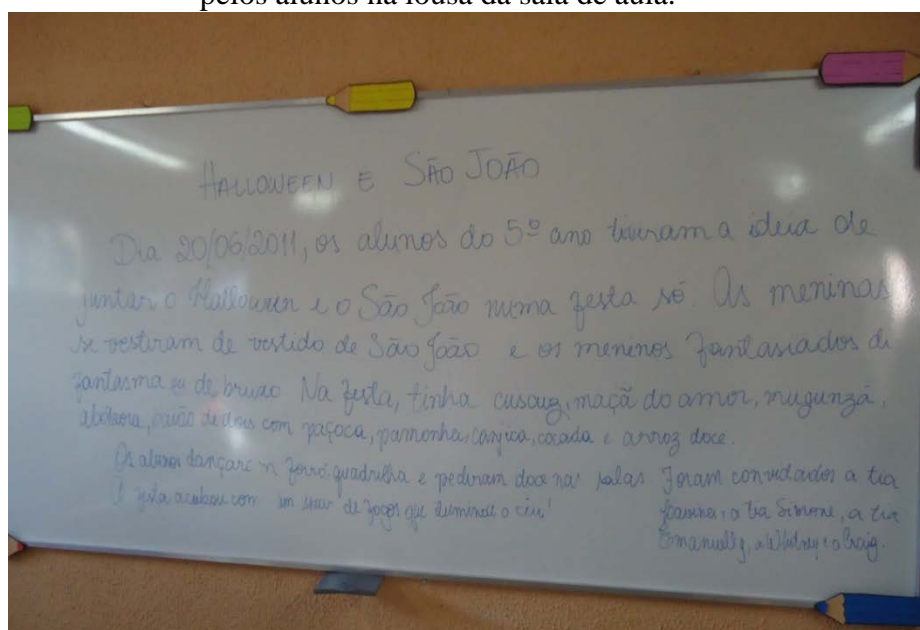 pelos alunos na lousa da sala de aula.
HALLOWEEN E SÃO JOÃO
Dia 20/06/2011, os alunos do 5º ano tiveram a ideia de
juntar o Halloween e o São João numa festa só. As meninas
se vestiram de vestido de São João e os meninos fantasiados de
fantasma ou de bruxo. Na festa, tinha cuscuz, maçã do amor, mugunzá,
abóbora, baião de dois com paçoca, pamonha, canjica, cocada e arroz doce.
Os alunos dançaram forró, quadrilha e pediram doce nas salas. Foram convidados a tia
A festa acabou com um show de fogos que iluminou o céu!
a tia Simone, a tia
Emanuelly, a Whitney e o Craig.